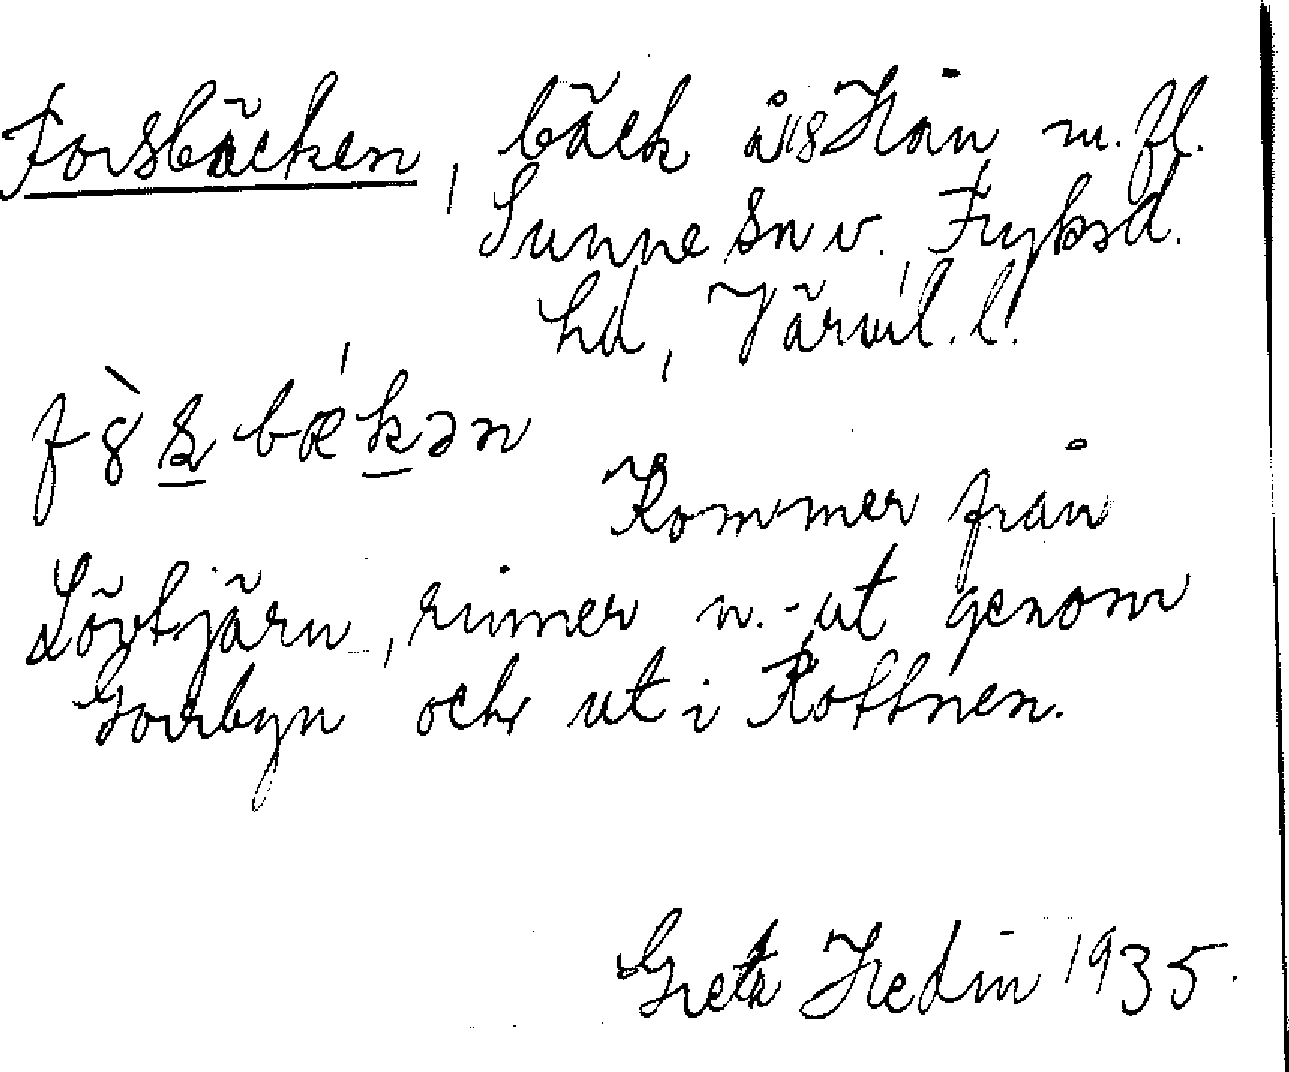 Forsbäcken, bäck å Hån m.fl.
Sunne sn v., Fryksd.
hd, Värml. l.
Kommer från
Lövtjärn, rinner n.-ut genom
Gorrbyn och ut i Rottnen.
Greta Hedin 1935.